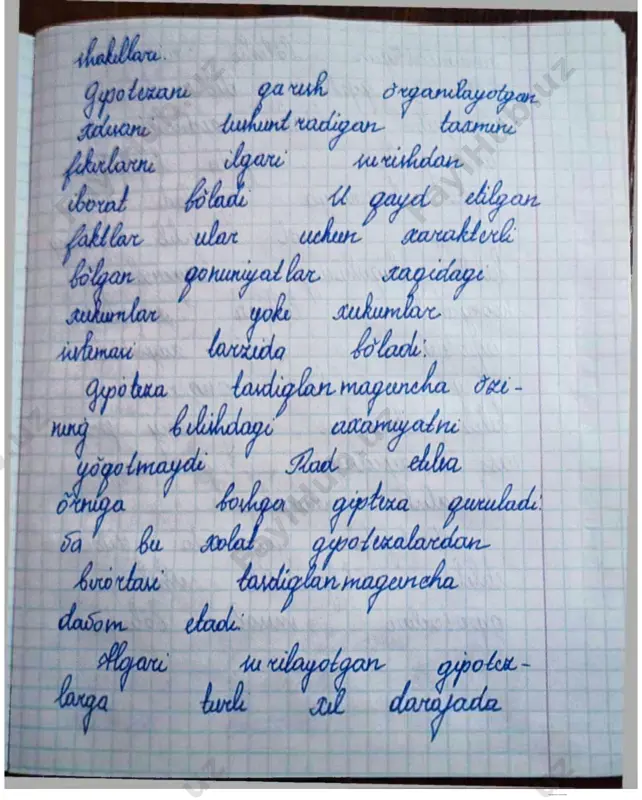 shakillari.
Gipotezani qarish õrganilayotgan
xdisani tushuntradigan taxmini
fikirlarni ilgari surishdan
iborat bõladi U qayd etilgan
faktlar ular uchun xarakterli
bõlgan qonuniyatlar xaqidagi
xukumlar yoki xukumlar
sistemasi tarzida bõladi.
Gipoteza tasdiqlanmaguncha õzi-
ning bilishdagi axamiyatni
yõqotmaydi Rad etilsa
õrniga boshqa gipteza quruladi.
va bu xolat gipotezalardan
birortasi tasdiqlanmaguncha
davom etadi.
Ilgari surilayotgan gipotez-
larga turli xil darajada